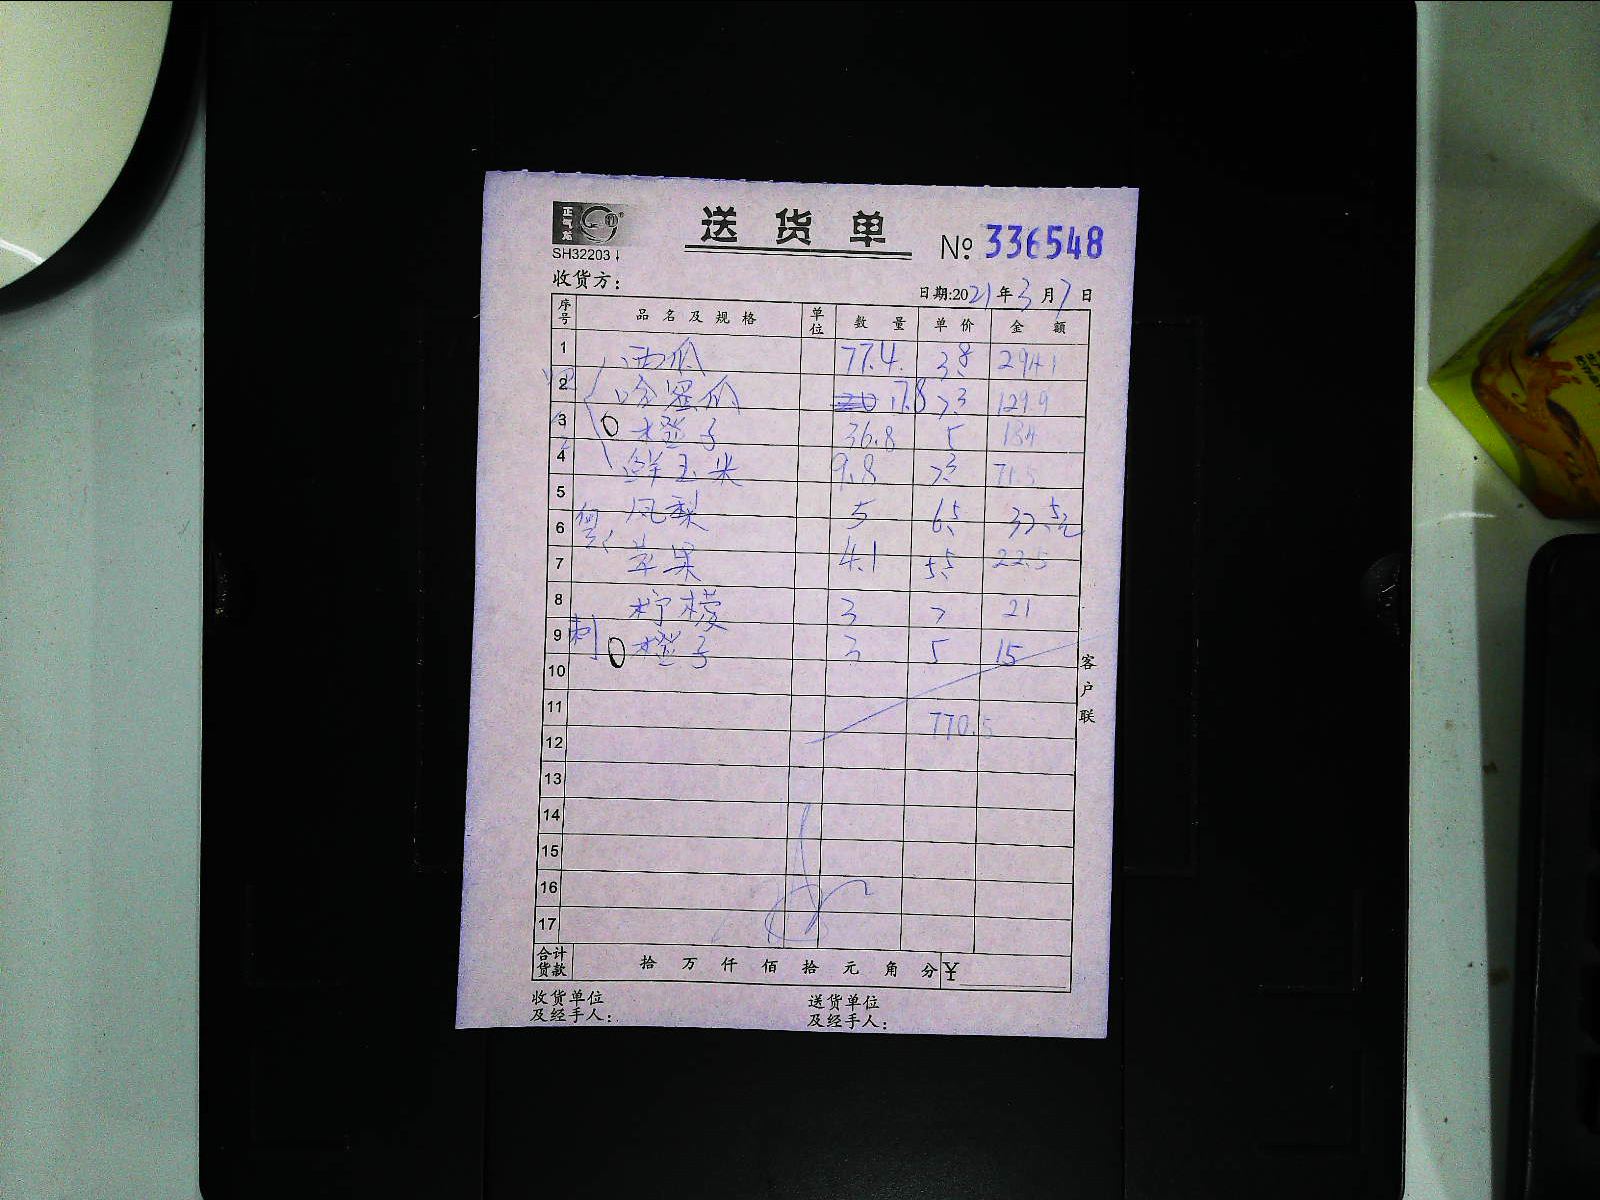 正气龙
送货单
SH32203
No 336548
收货方:
日期:2021年3月7日
序号 品名及规格 单位 数量 单价 金额
1 西瓜 77.4 3.8 294.1
2 哈密瓜 17.8 7.3 129.9
3 橙子 36.8 5 184
4 鲜玉米 9.8 7.3 71.5
5 凤梨 5 6.5 32.5元
6
7 苹果 4.1 5.5 22.5
8 柠檬 3 7 21
9 橙子 3 5 15
10
11 770.5
12
13
14
15
16
17
合计货款 拾万仟佰拾元角分¥
收货单位及经手人:
送货单位及经手人:
客户联